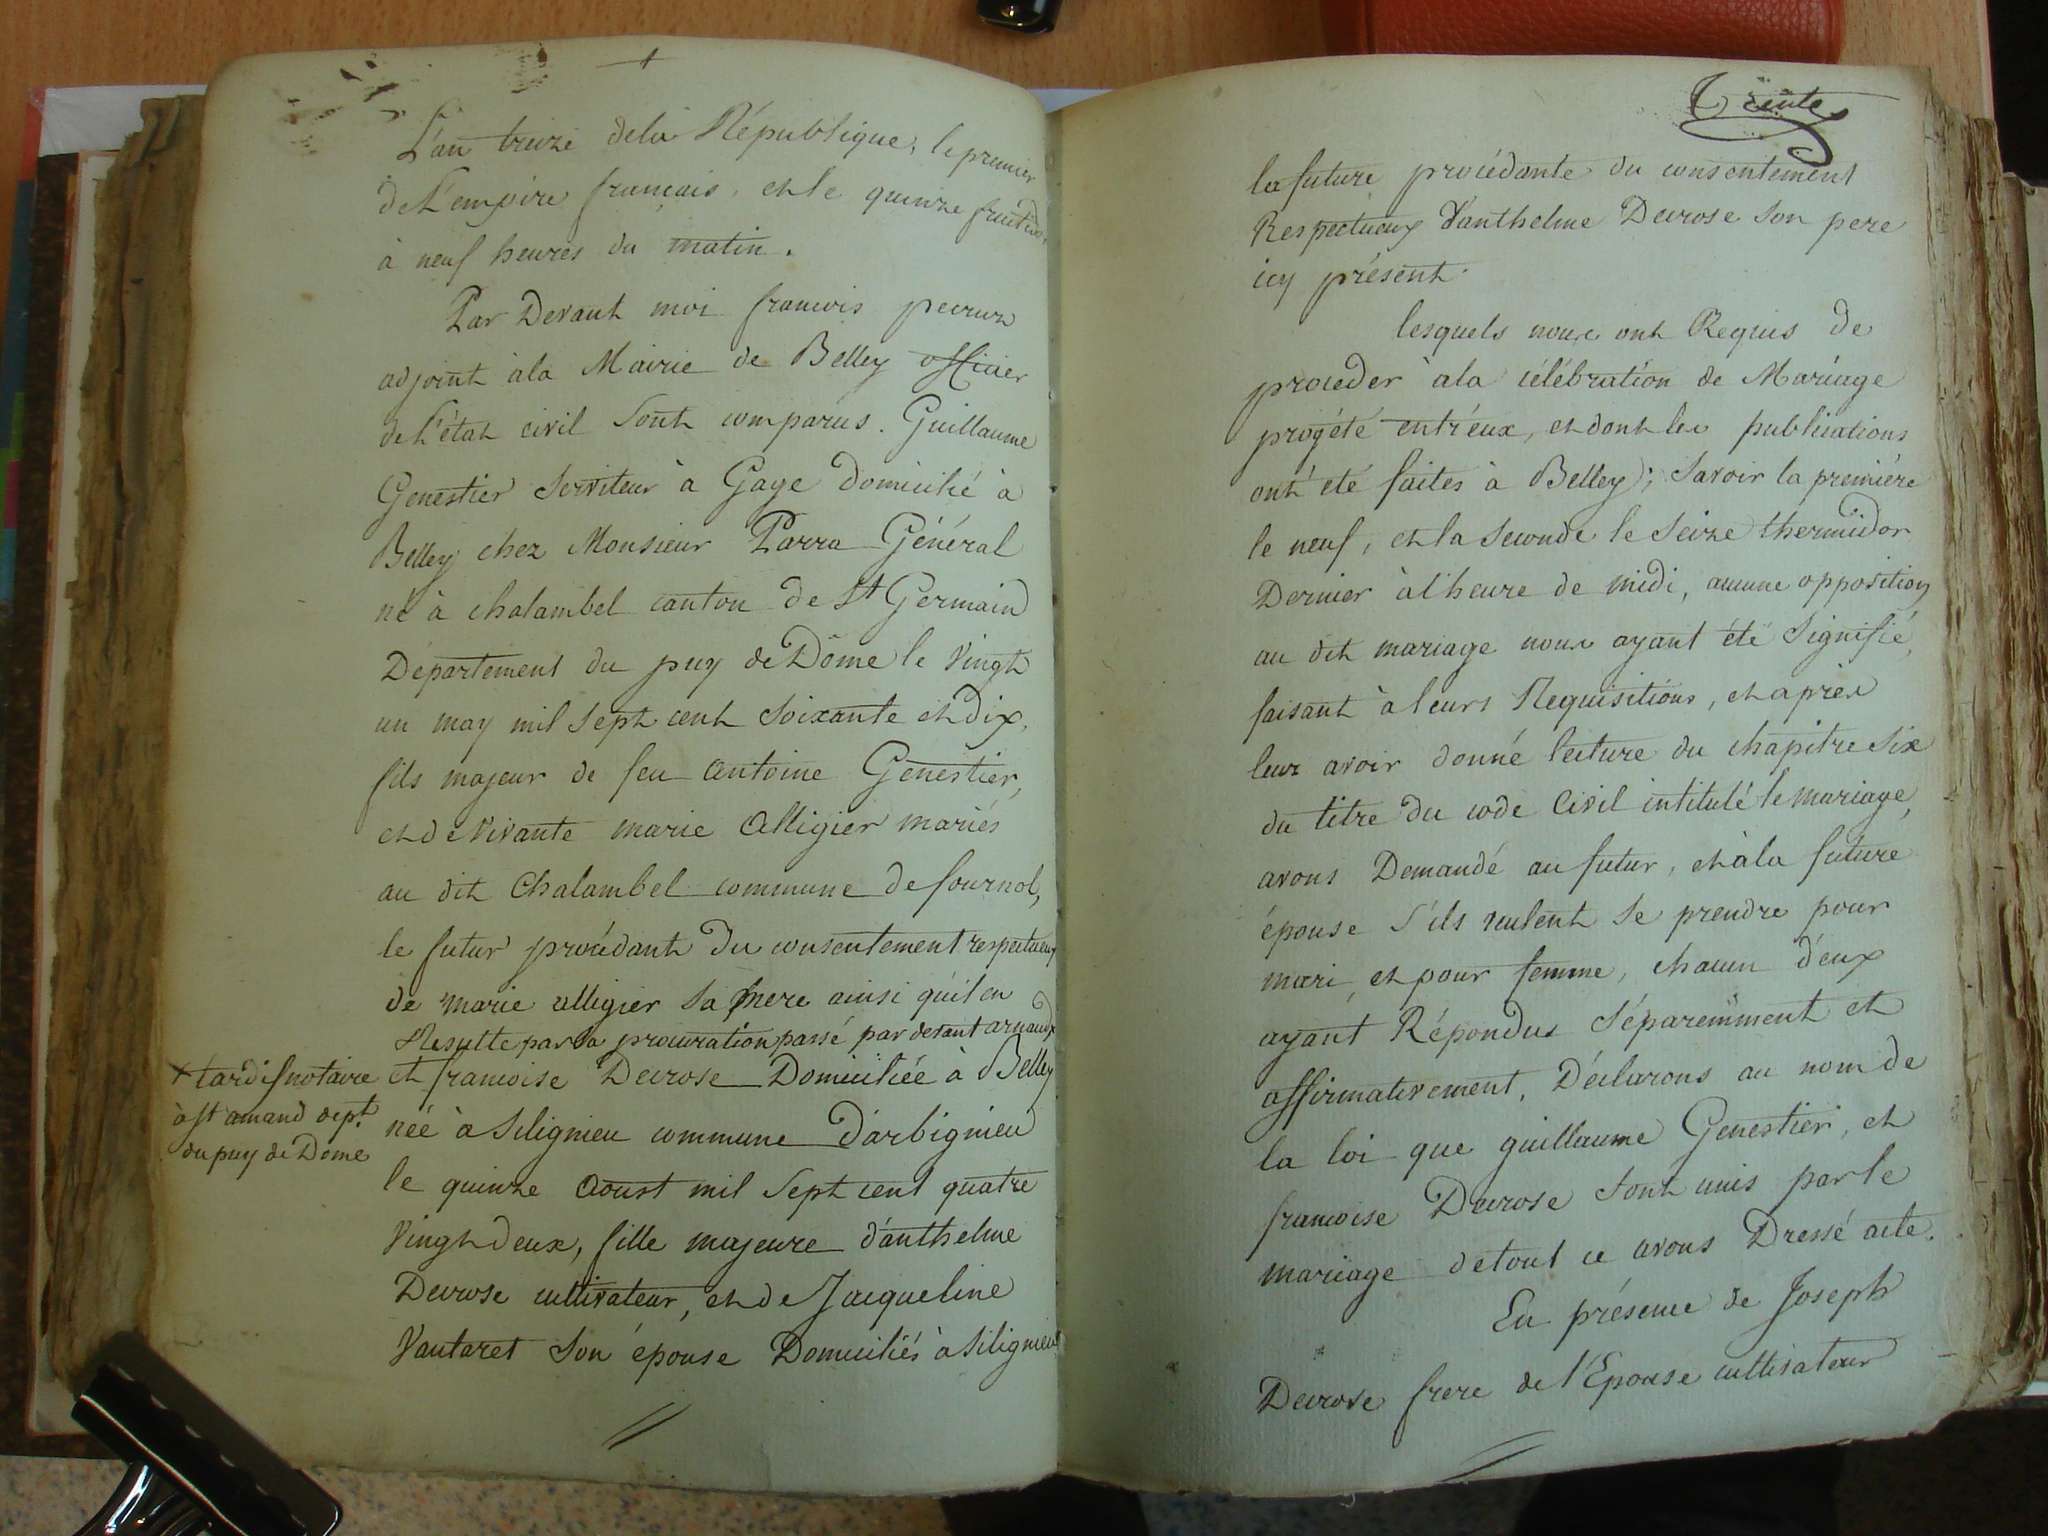 L'an treize dela République, le premier
de L'empire français, et le quinze fructidor
à neuf heures du matin.
Par Devant moi francois pecruz
adjoint àla Mairie de Belley officier
de L'état civil Sont comparus. Guillaume
Genestier Serviteur à Gage Domicilié à
Belley chez Monsieur Parra Général
né à chalambel canton de St Germain
Département du puy de Dôme le Vingt
un may mil Sept cent Soixante et Dix,
fils majeur de feu Antoine Genestier,
et de vivante marie Alligier mariés
au dit Chalambel commune de fournol,
le futur procédant Du consentement respectueux
de marie alligier Sa mere ainsi qu'il en
Resulte par sa procuration passé par devant arnaud
+ tardif notaire
à St amand dept.
du puy de Dome
et francoise Decrose Domiciliée à Belley
née à Silignieu commune D'arbignieu
le quinze Aoust mil Sept cent quatre
Vingt Deux, fille majeure d'anthelme
Decrose cultivateur, et de Jacqueline
Vautaret Son épouse Domiciliés à Silignieu
Trente
la future procédante du consentement
Respectueux D'anthelme Decrose Son pere
icy présent.
lesquels nous ont Requis de
proceder àla célébration de Mariage
progété entr'eux, et dont les publications
ont été faites à Belley; Savoir la première
le neuf, et la Seconde le Seize thermidor
Dernier à l'heure de midi, aucune opposition
au dit mariage nous ayant été Signifié,
faisant à leurs Requisitions, et après
leur avoir donné lecture du chapitre Six
du titre Du code Civil intitulé le mariage,
avons Demandé au futur, et àla future
épouse s'ils veulent Se prendre pour
mari, et pour femme, chacun d'eux
ayant Répondus Séparemment et
affirmativement, Déclarons au nom de
la loi que guillaume Genestier, et
francoise Decrose Sont unis par le
mariage detout ce avons Dressé acte.
En présence de Joseph
Decrose frere de l'Epouse cultivateur